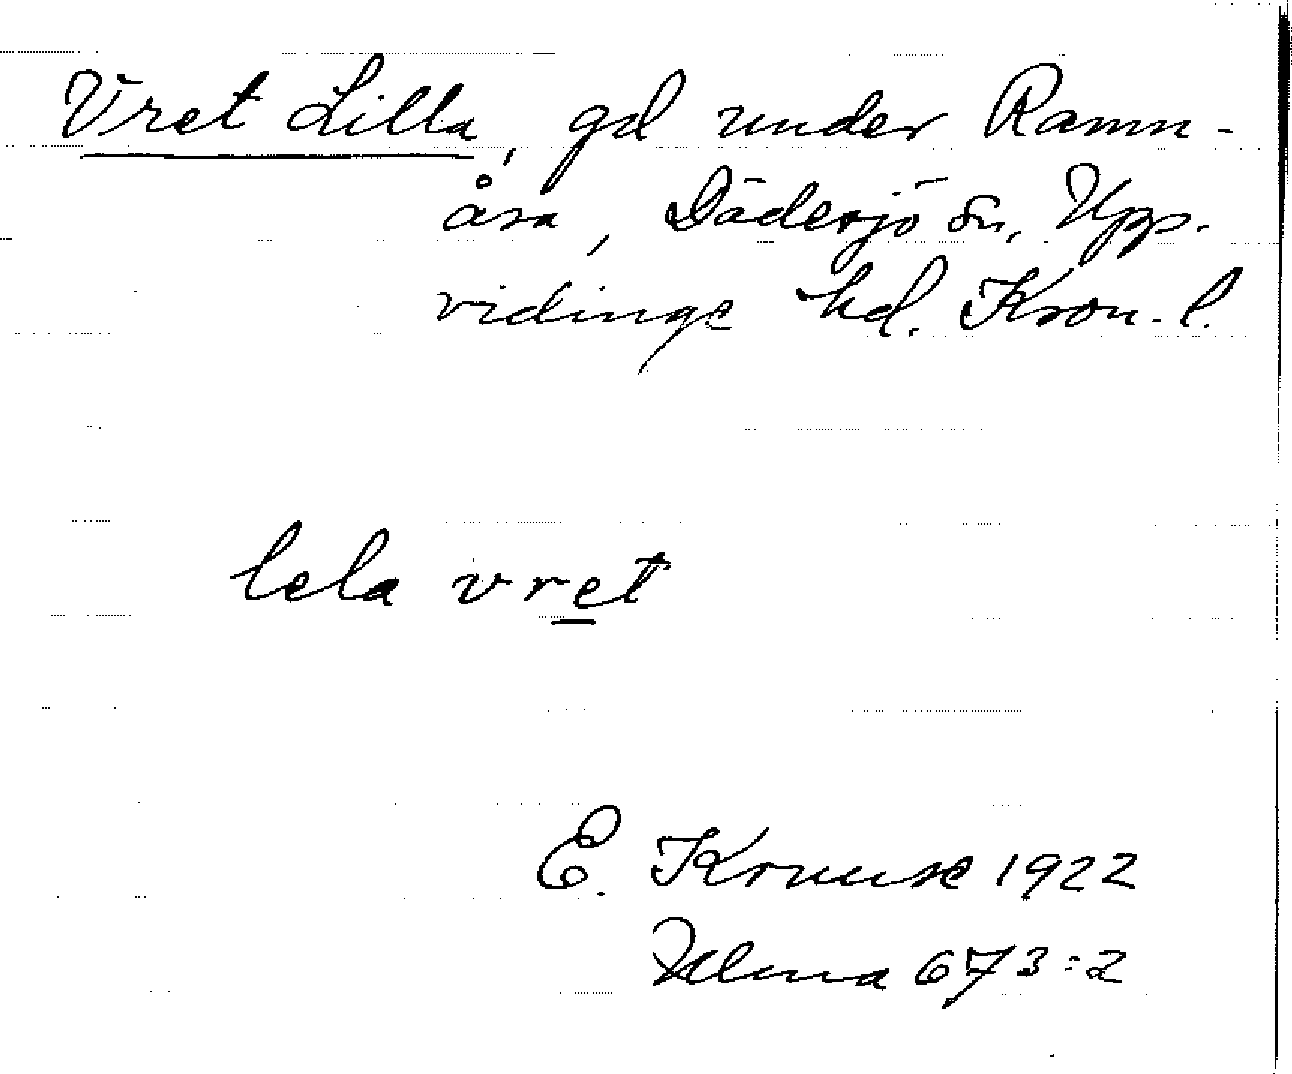 Vret Lilla, gd under Ramn-
åsa, Dädesjö sn, Upp-
vidinge hd. Kron. l.
lela vret
E. Kruuse 1922
Ulma 673:2